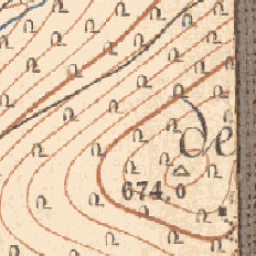 de
674,0